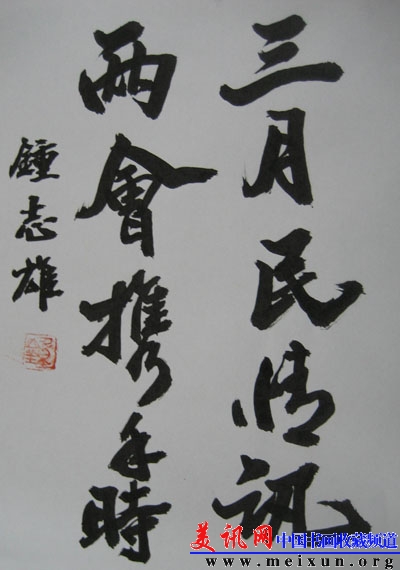 三月民情訊
兩會攜手時
鍾志雄
美讯网 中国书画收藏频道
www.meixun.org